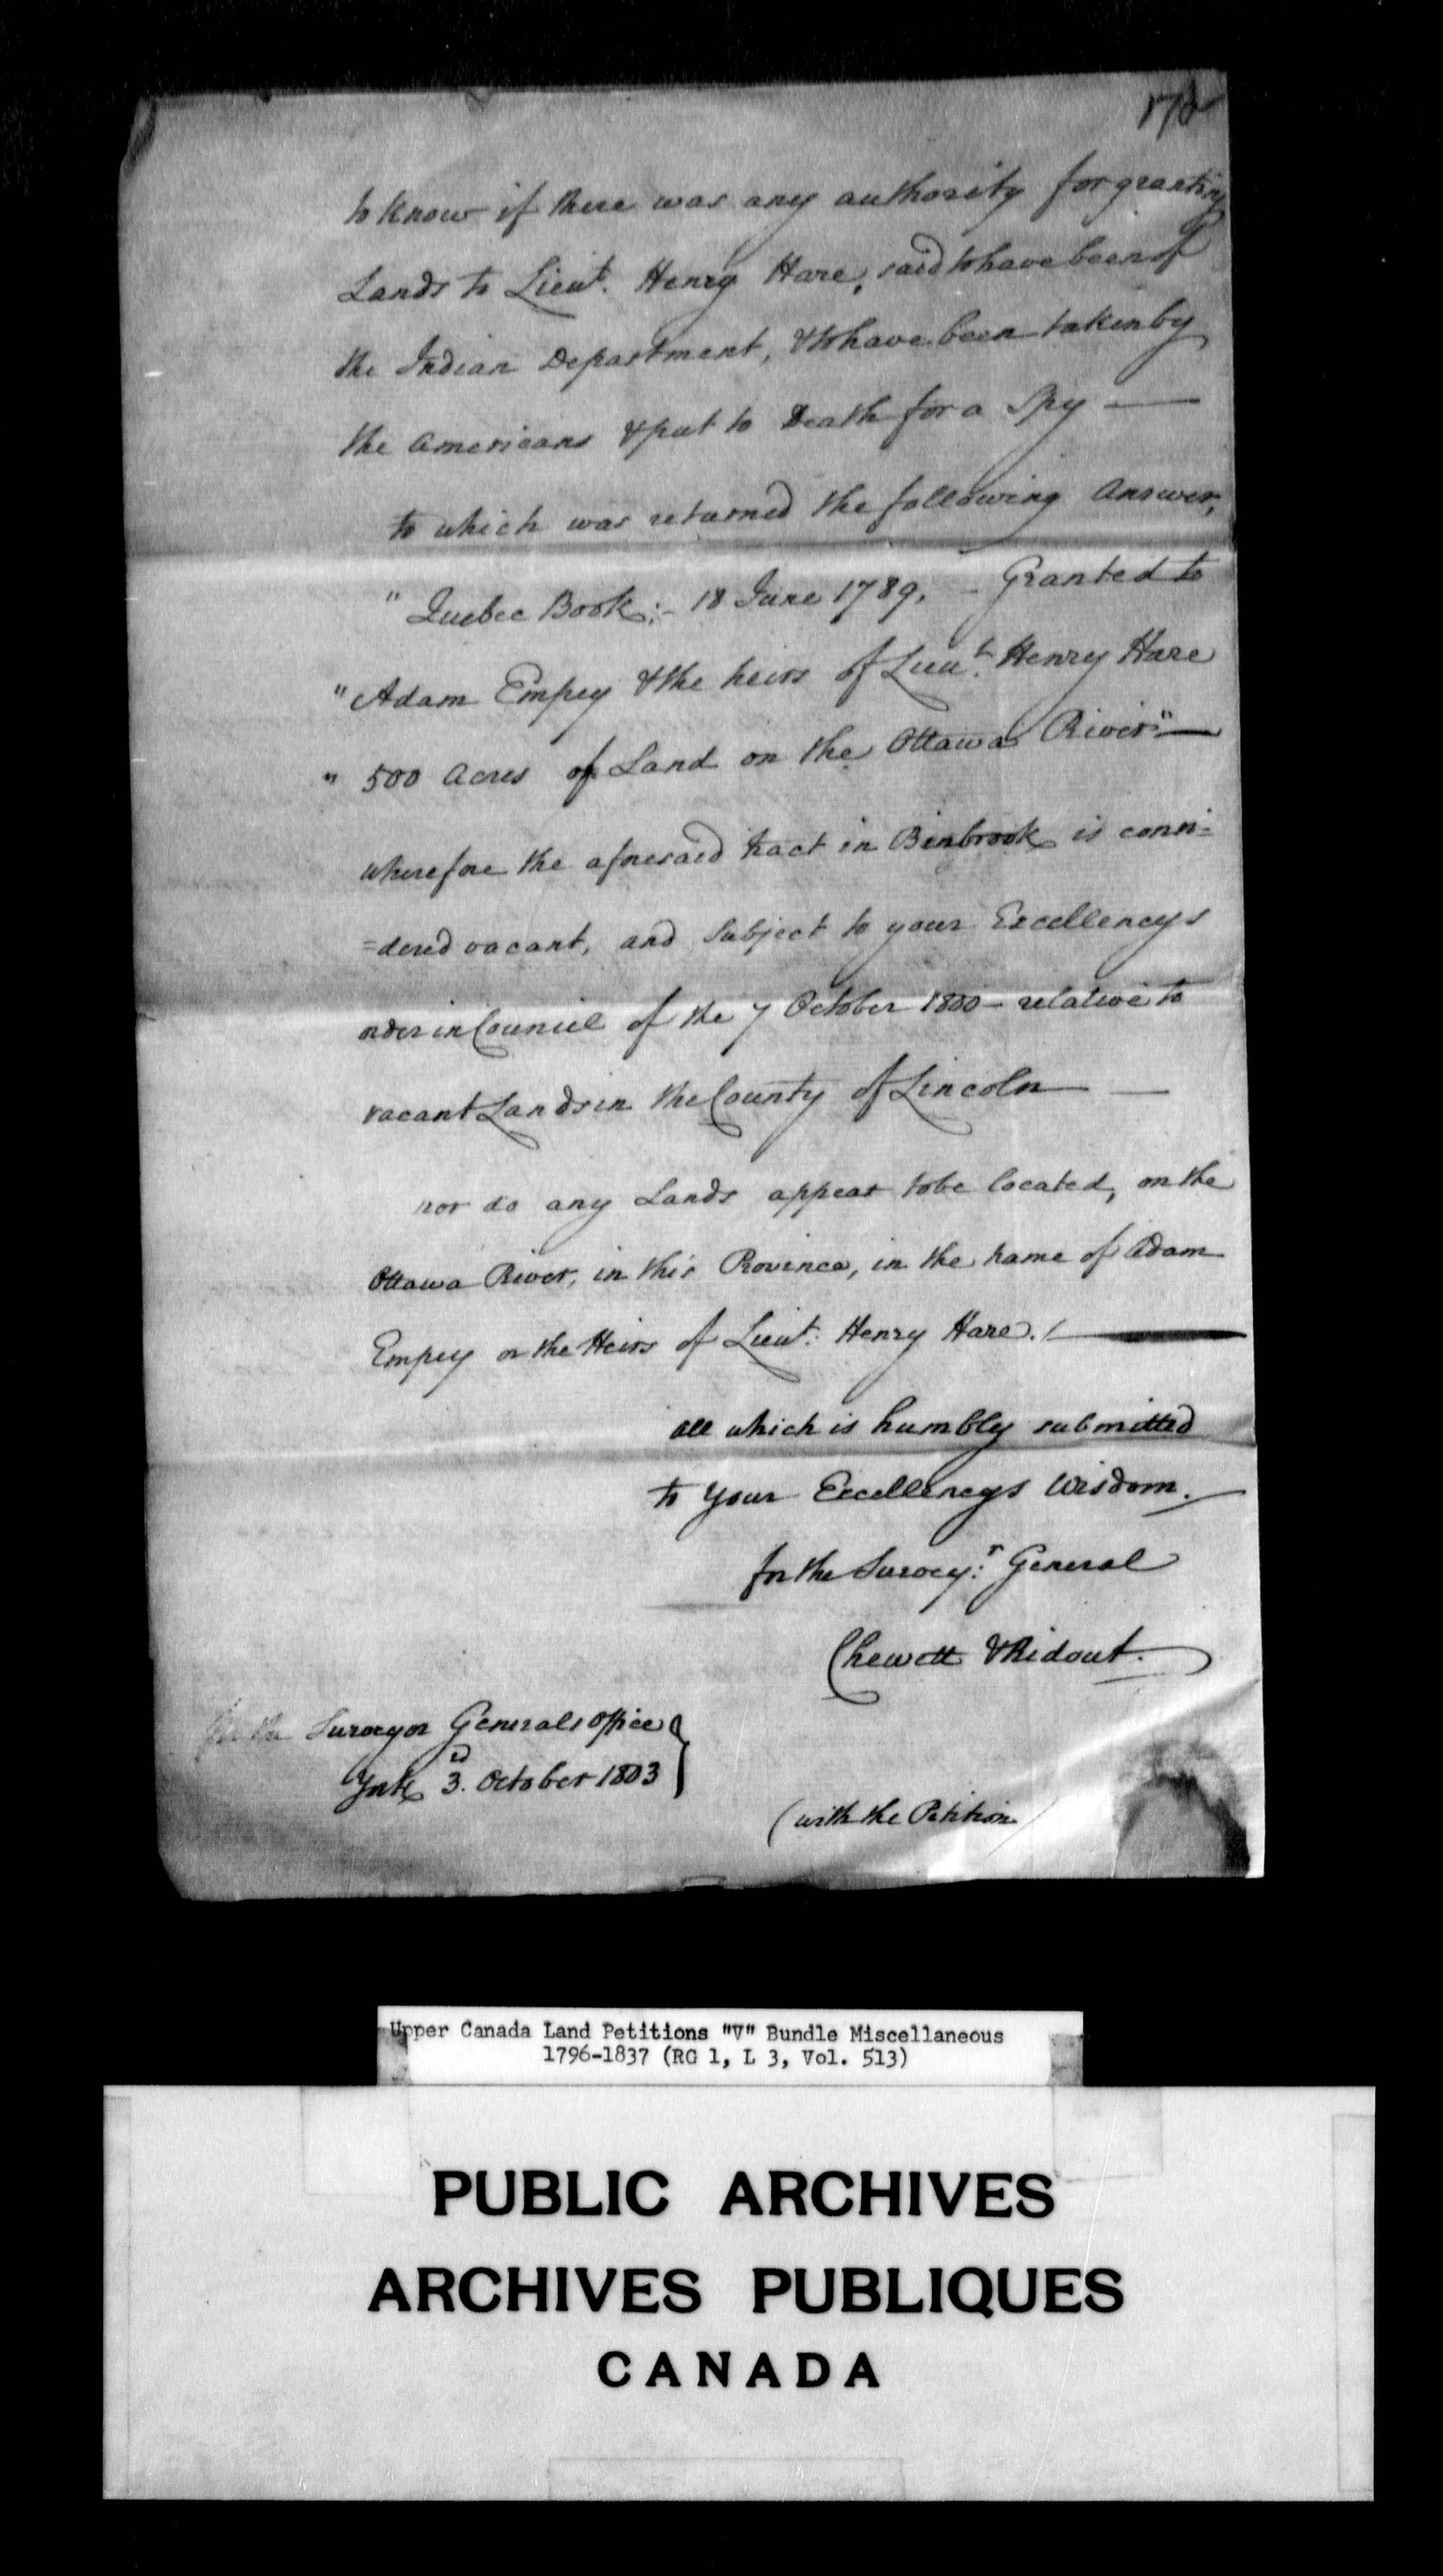 to know if there was any authority for granting
Lands to Lieut. Henry Hare, said to have been of
the Indian Department, & to have been taken by
the Americans & put to Death for a Spy —
to which was returned the following Answer,
" Quebec Book:- 18 June 1789. - Granted to
" Adam Empey & the heirs of Lieut. Henry Hare
" 500 Acres of Land on the Ottawa River" —
wherefore the aforesaid tract in Binbrook is consi=
=dered vacant, and Subject to your Excellencys
order in Council of the 7 October 1800 - relative to
vacant Lands in the County of Lincoln —
nor do any Lands appear to be located, on the
Ottawa River, in this Province, in the name of Adam
Empey or the Heirs of Lieut: Henry Hare. /
all which is humbly submitted
to your Excellencys Wisdom.
for the Survey:r General
Chewett & Ridout.
Surveyor Generals office
York 3.d October 1803
(with the Petition
Upper Canada Land Petitions "V" Bundle Miscellaneous
1796-1837 (RG 1, L 3, Vol. 513)
PUBLIC ARCHIVES
ARCHIVES PUBLIQUES
CANADA